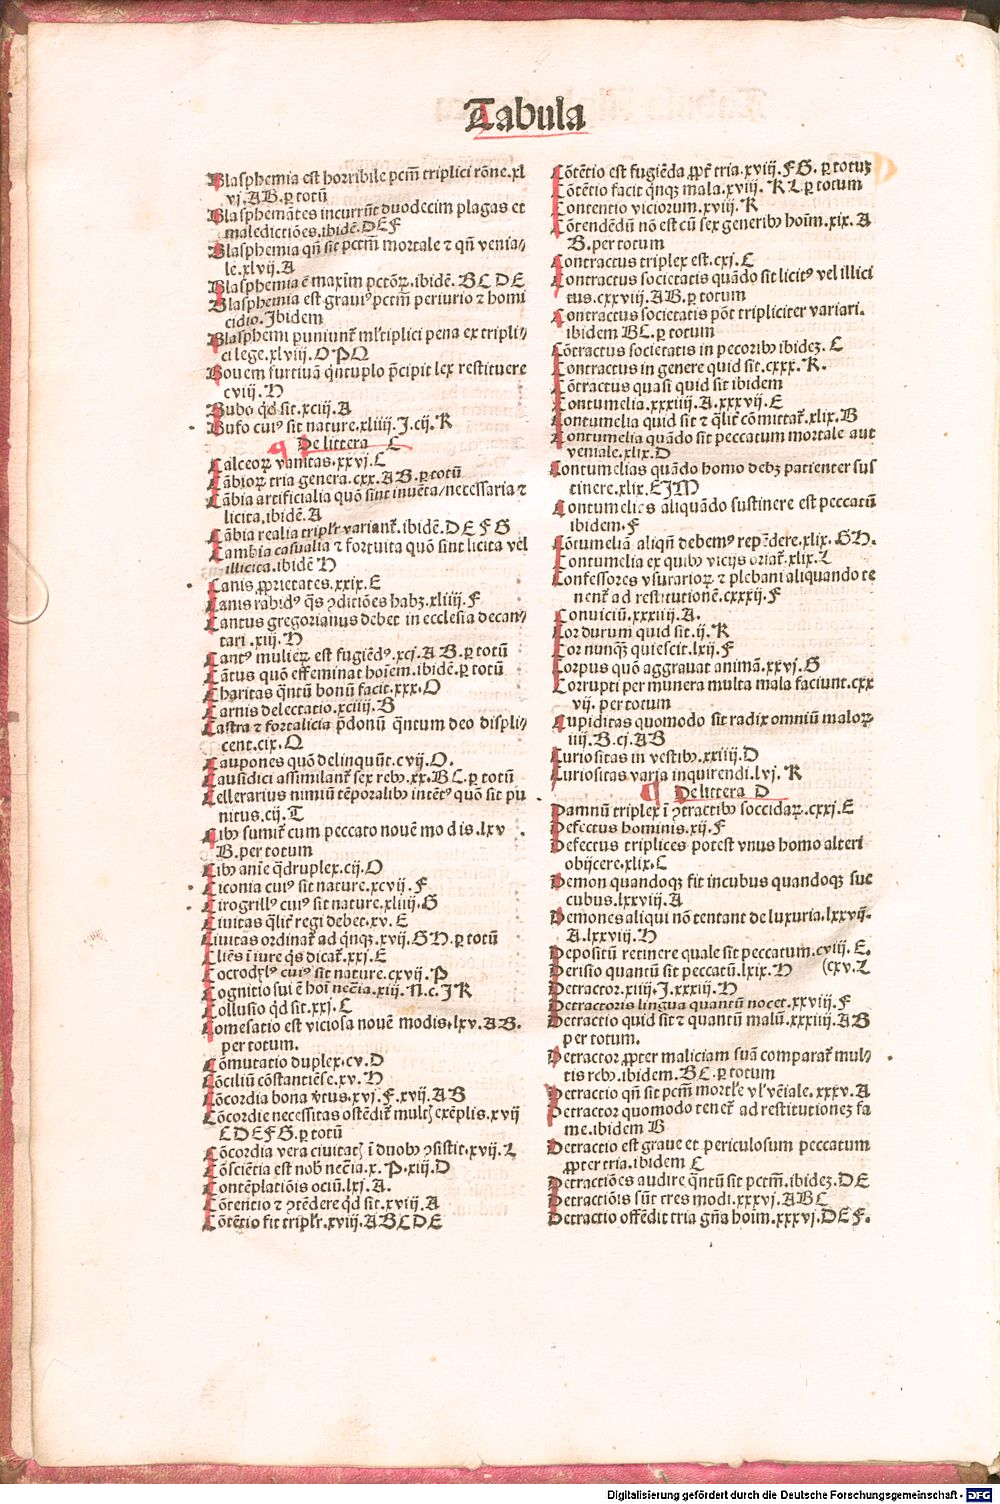 Tabula
Blasphemia est horribile pctm̄ triplici rōne.xl
vj.A B.ꝑ totū
Blasphemātes incurrūt duodecim plagas et
maledictiōes.ibidē.D E F
Blasphemia qn̄ sit pctm̄ mortale ⁊ qn̄ venia⸗
le.xlvij.A
Blasphemia ē maxim̄ pctōꝝ.ibidē.B C D E
Blasphemia est grauiꝰ pctm̄ periurio ⁊ homi
cidio.Jbidem
Blasphemi puniunt̄ ml̓tiplici pena ex tripli⸗
ci lege.xlviij.O P Q
Bouem furtiuā qntuplo p̄cipit lex restituere
cviij.H
Bubo qd̓ sit.xciij.A
Bufo cuiꝰ sit nature.xliiij.J.cij.K
¶ De littera C
Calceoꝝ vanitas.xxvj.C
Cābioꝝ tria genera.cxx.A B.ꝑ totū
Cābia artificialia quō sint inuēta/necessaria ⁊
licita.ibidē.A
Cābia realia tripl̓r variant̄.ibidē.D E F G
Cambia casualia ⁊ fortuita quō sint licita vel
illicita.ibidē H
Canis ꝓprietates.xxix.E
Canis rabidꝰ q̄s ꝯditiōes habꝫ.xliiij.F
Cantus gregorianus debet in ecclesia decan⸗
tari.xiij.H
Cantꝰ mulieꝝ est fugiēdꝰ.xcj.A B.ꝑ totū
Cātus quō effeminat hoīem.ibidē.ꝑ totū
Charitas qntū bonū facit.xxx.O
Carnis delectatio.xciiij.B
Castra ⁊ fortalicia p̄donū qntum deo displi⸗
cent.cix.Q
Caupones quō delinquūt.cvij.O.
Causidici assimilant̄ sex rebꝰ.xx.B C.ꝑ totū
Cellerarius nimiū tēporalibꝰ intētꝰ quō sit pu
nitus.cij.T
Cibꝰ sumit̄ cum peccato nouē modis.lxv
B.per totum
Cibꝰ anīe qdruplex.cij.O
Ciconia cuiꝰ sit nature.xcvij.F
Cirogrillꝰ cuiꝰ sit nature.xliiij.G
Ciuitas ql̓it̄ regi debet.xv.E
Ciuitas ordinat̄ ad qnqꝫ.xvij.G H.ꝑ totū
Cliēs ī iure qs dicat̄.xxj.E
Cocrodyl̓ꝰ cuiꝰ sit nature.cxvij.P
Cognitio sui ē hoī necīa.xiij.N.c.J K
Collusio qd̓ sit.xxj.C
Comesatio est viciosa nouē modis.lxv.A B.
per totum.
Cōmutatio duplex.cv.D
Cōciliū cōstantiēse.xv.H
Cōcordia bona v̓tus.xvj.F.xvij.A B
Cōcordie necessitas ostēdit̄ multꝭ exēplis.xvij
C D E F G.ꝑ totū
Cōcordia vera ciuitatꝭ ī duobꝰ ꝯsistit.xvij.L
Cōsciētia est nob̄ necīa.x.P.xiij.D
Contēplatiōis ociū.lxj.A.
Cōtentio ⁊ ꝯtēdere qd̓ sit.xviij.A
Cōtētio fit tripl̓r.xviij.A B C D E
Cōtētio est fugiēda ꝓpt̄ tria.xviij.F G.ꝑ totuꝫ
Cōtētio facit qnqꝫ mala.xviij.K L.ꝑ totum
Contentio viciorum.xviij.K
Cōtendēdū nō est cū sex generibꝰ hoīm.xix.A
B.per totum
Contractus triplex est.cxj.C
Contractus societatis quādo sit licitꝰ vel illici
tus.cxxviij.A B.ꝑ totum
Contractus societatis pōt tripliciter variari.
ibidem B C.ꝑ totum
Cōtractus societatis in pecoribꝰ ibideꝫ.C
Contractus in genere quid sit.cxxx.K.
Cōtractus quasi quid sit ibidem
Contumelia.xxxiiij.A.xxxvij.E
Contumelia quid sit ⁊ ql̓it̄ cōmittat̄.xlix.B
Contumelia quādo sit peccatum mortale aut
veniale.xlix.D
Contumelias quādo homo debꝫ patienter sus
tinere.xlix.E J M
Contumelies aliquādo sustinere est peccatū
ibidem.F
Cōtumeliā aliqn̄ debemꝰ rep̄hēdere.xlix.G H.
Contumelia ex quibꝰ vicijs oriat̄.xlix.L
Confessores vsurarioꝝ ⁊ plebani aliquando te
nent̄ ad restitutionē.cxxxij.F
Conuiciū.xxxiiij.A.
Cor durum quid sit.ij.K
Cor nunqꝫ quiescit.lxij.F
Corpus quō aggrauat animā.xxvj.G
Corrupti per munera multa mala faciunt.cxx
vij.per totum
Cupiditas quomodo sit radix omniū maloꝝ
iiij.B.cj.A B
Curiositas in vestibꝰ.xxiiij.D
Curiositas varia inquirendi.lvj.K
¶ De littera D
Damnū triplex ī ꝯtractibꝰ soccidaꝝ.cxxj.E
Defectus hominis.xij.F
Defectus triplices potest vnus homo alteri
obijcere.xlix.C
Demon quandoqꝫ fit incubus quandoqꝫ suc
cubus.lxxviij.A
Demones aliqui nō tentant de luxuria.lxxvij.
A.lxxviij.H
Depositū retinere quale sit peccatum.cviij.E.
Derisio quantū sit peccatū.lxix.H (cxv.L
Detractor.xiiij.J.xxxiij.H
Detractoris lingua quantū nocet.xxviij.F
Detractio quid sit ⁊ quantū malū.xxxiiij.A B
per totum.
Detractor ꝓpter maliciam suā comparat̄ mul⸗
tis rebꝰ.ibidem.B C.ꝑ totum
Detractio qn̄ sit pctm̄ mortl̓e vl̓ vēiale.xxxv.A
Detractor quomodo tenet̄ ad restitutioneꝫ fa
me.ibidem B
Detractio est graue et periculosum peccatum
ꝓpter tria.ibidem C
Detractiōes audire qntū sit pctm̄.ibideꝫ.D E
Detractiōis sūt tres modi.xxxvj.A B C
Detractio offēdit tria gn̄a hoīm.xxxvj.D E F.
Digitalisierung gefördert durch die Deutsche Forschungsgemeinschaft - DFG